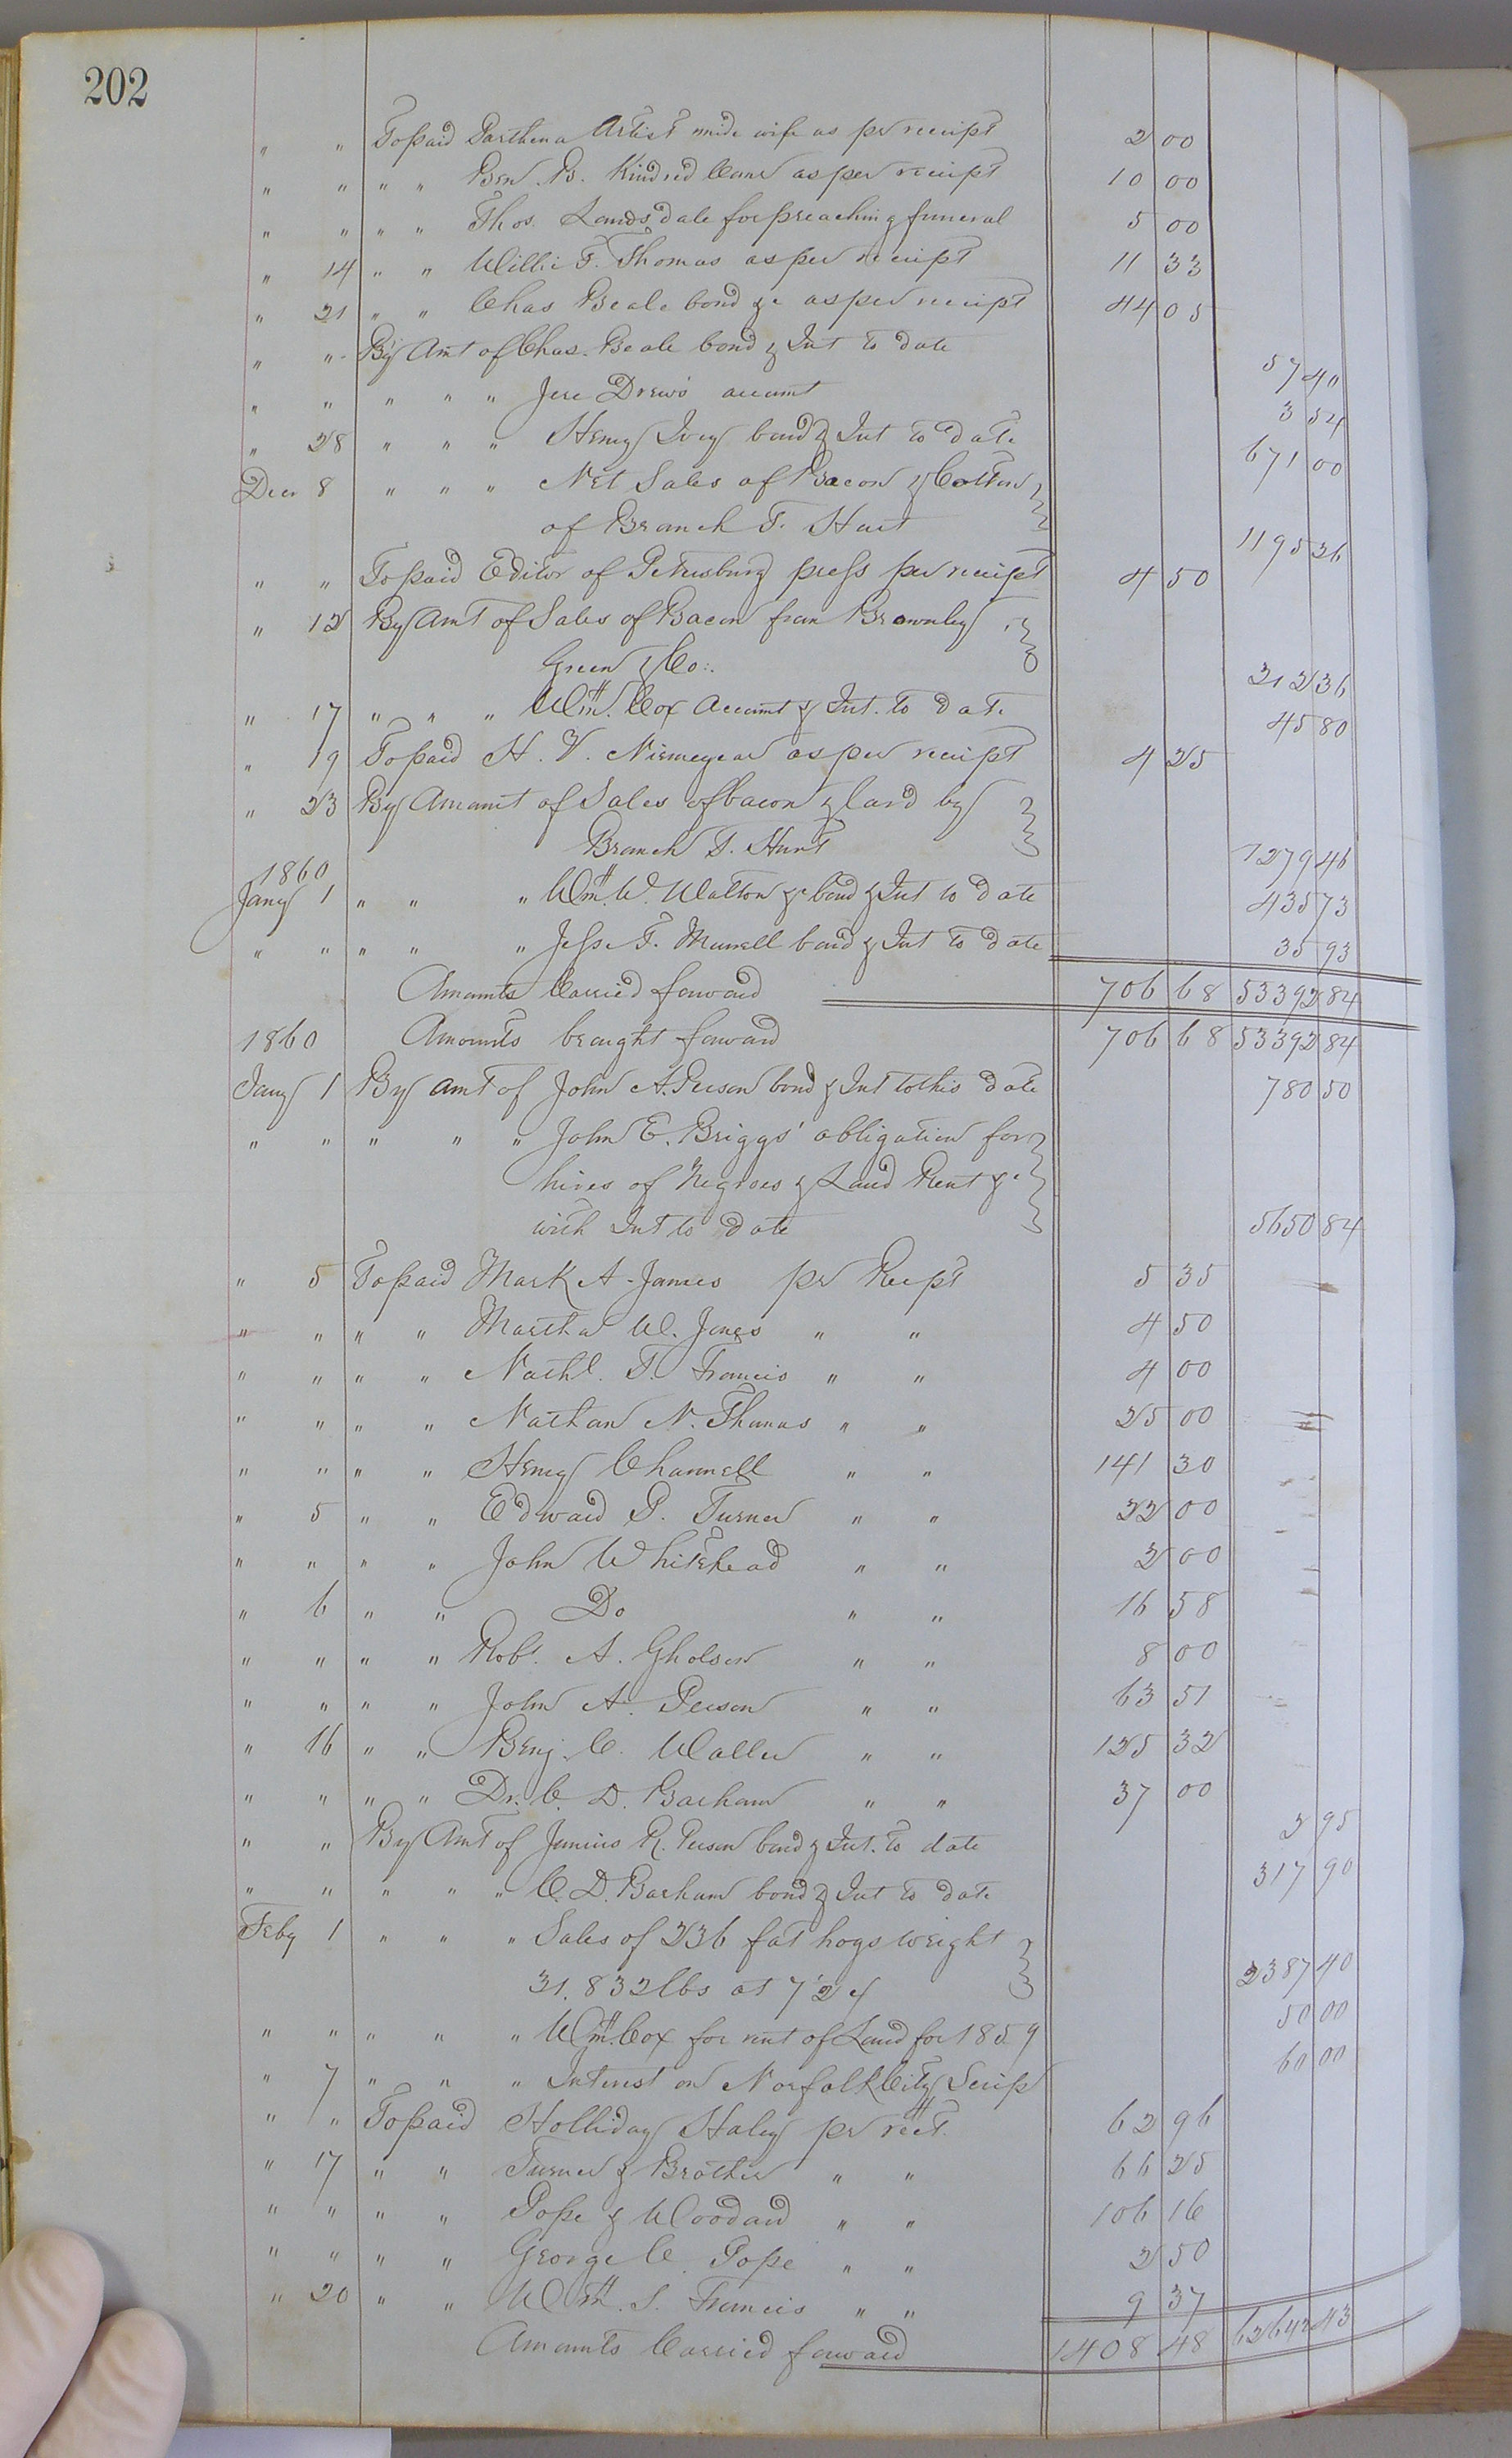 202
" " To paid Parthena Artist mide wife as per receipt 2 00
" " " " Ben. B. Kindred Conr as per receipt 10 00
" " " " Thos. Landsdale for preaching funeral 5 00
" 14 " " Willie T. Thomas as per receipt 11 33
" 21 " " Chas Beale bond &c as per receipt 44 05
" " By Amt of Chas. Beale bond & Int to date 57 40
" " " " " Jere Drew's account 3 54
" 28 " " " Henry Ivey bond & Int to date 671 00
Decr 8 " " " Net Sales of Bacon & Cotton
of Branch T. Hurt 1195 26
" " To paid Editor of Petersburg press per receipt 4 50
" 12 By Amt of Sales of Bacon from Brownley
Green & Co:. 212 36
" 17 " " " Wm. Cox Account & Int. to date 45 80
" 19 To paid H. V. Niemeyear as per receipt 4 25
" 23 By Amount of Sales of bacon & lard by
Branch T. Hunt 1279 46
1860
Jany 1 " " " Wm. W. Walton &c bond & Int to date 435 73
" " " " " Jesse T. Murrell bond & Int to date 35 93
Amounts Carried forward 706 68 53392 84
1860 Amounts brought forward 706 68 53392 84
Jany 1 By amt of John A. Person bond & Int to this date 780 50
" " " " " John E. Briggs' obligation for
hires of Negroes & Land Rent &c
with Int to date 5650 84
" 5 To paid Mark A. James per Recpt 5 35
" " " " Martha W. Jones " " 4 50
" " " " Nathl. T. Francis " " 4 00
" " " " Nathan N. Thomas " " 25 00
" " " " Henry Channell " " 141 30
" 5 " " Edward P. Turner " " 22 00
" " " " John Whitehead " " 2 00
" 6 " " Do " " 16 58
" " " " Robt. A. Gholson " " 8 00
" " " " John A. Person " " 63 51
" 16 " " Benj. C. Waller " " 125 32
" " " " Dr. C. D. Barham " " 37 00
" " By Amt of Junius R. Person bond & Int. to date 2 95
" " " " " C. D. Barham bond & Int to date 317 90
Feby 1 " " " Sales of 236 fat hogs weight
31.832 lbs at 7½ ¢ 2387 40
" " " " " Wm. Cox for rent of Land for 1859 50 00
" 7 " " " Interest on Norfolk City Scrip 60 00
" " To paid Holliday Haley per rect. 62 96
" 17 " " Turner & Brother " " 66 25
" " " " Pope & Woodard " " 106 16
" " " " George C. Pope " " 2 50
" 20 " " Wm. S. Francis " " 9 37
Amounts Carried forward 1408 48 62642 43